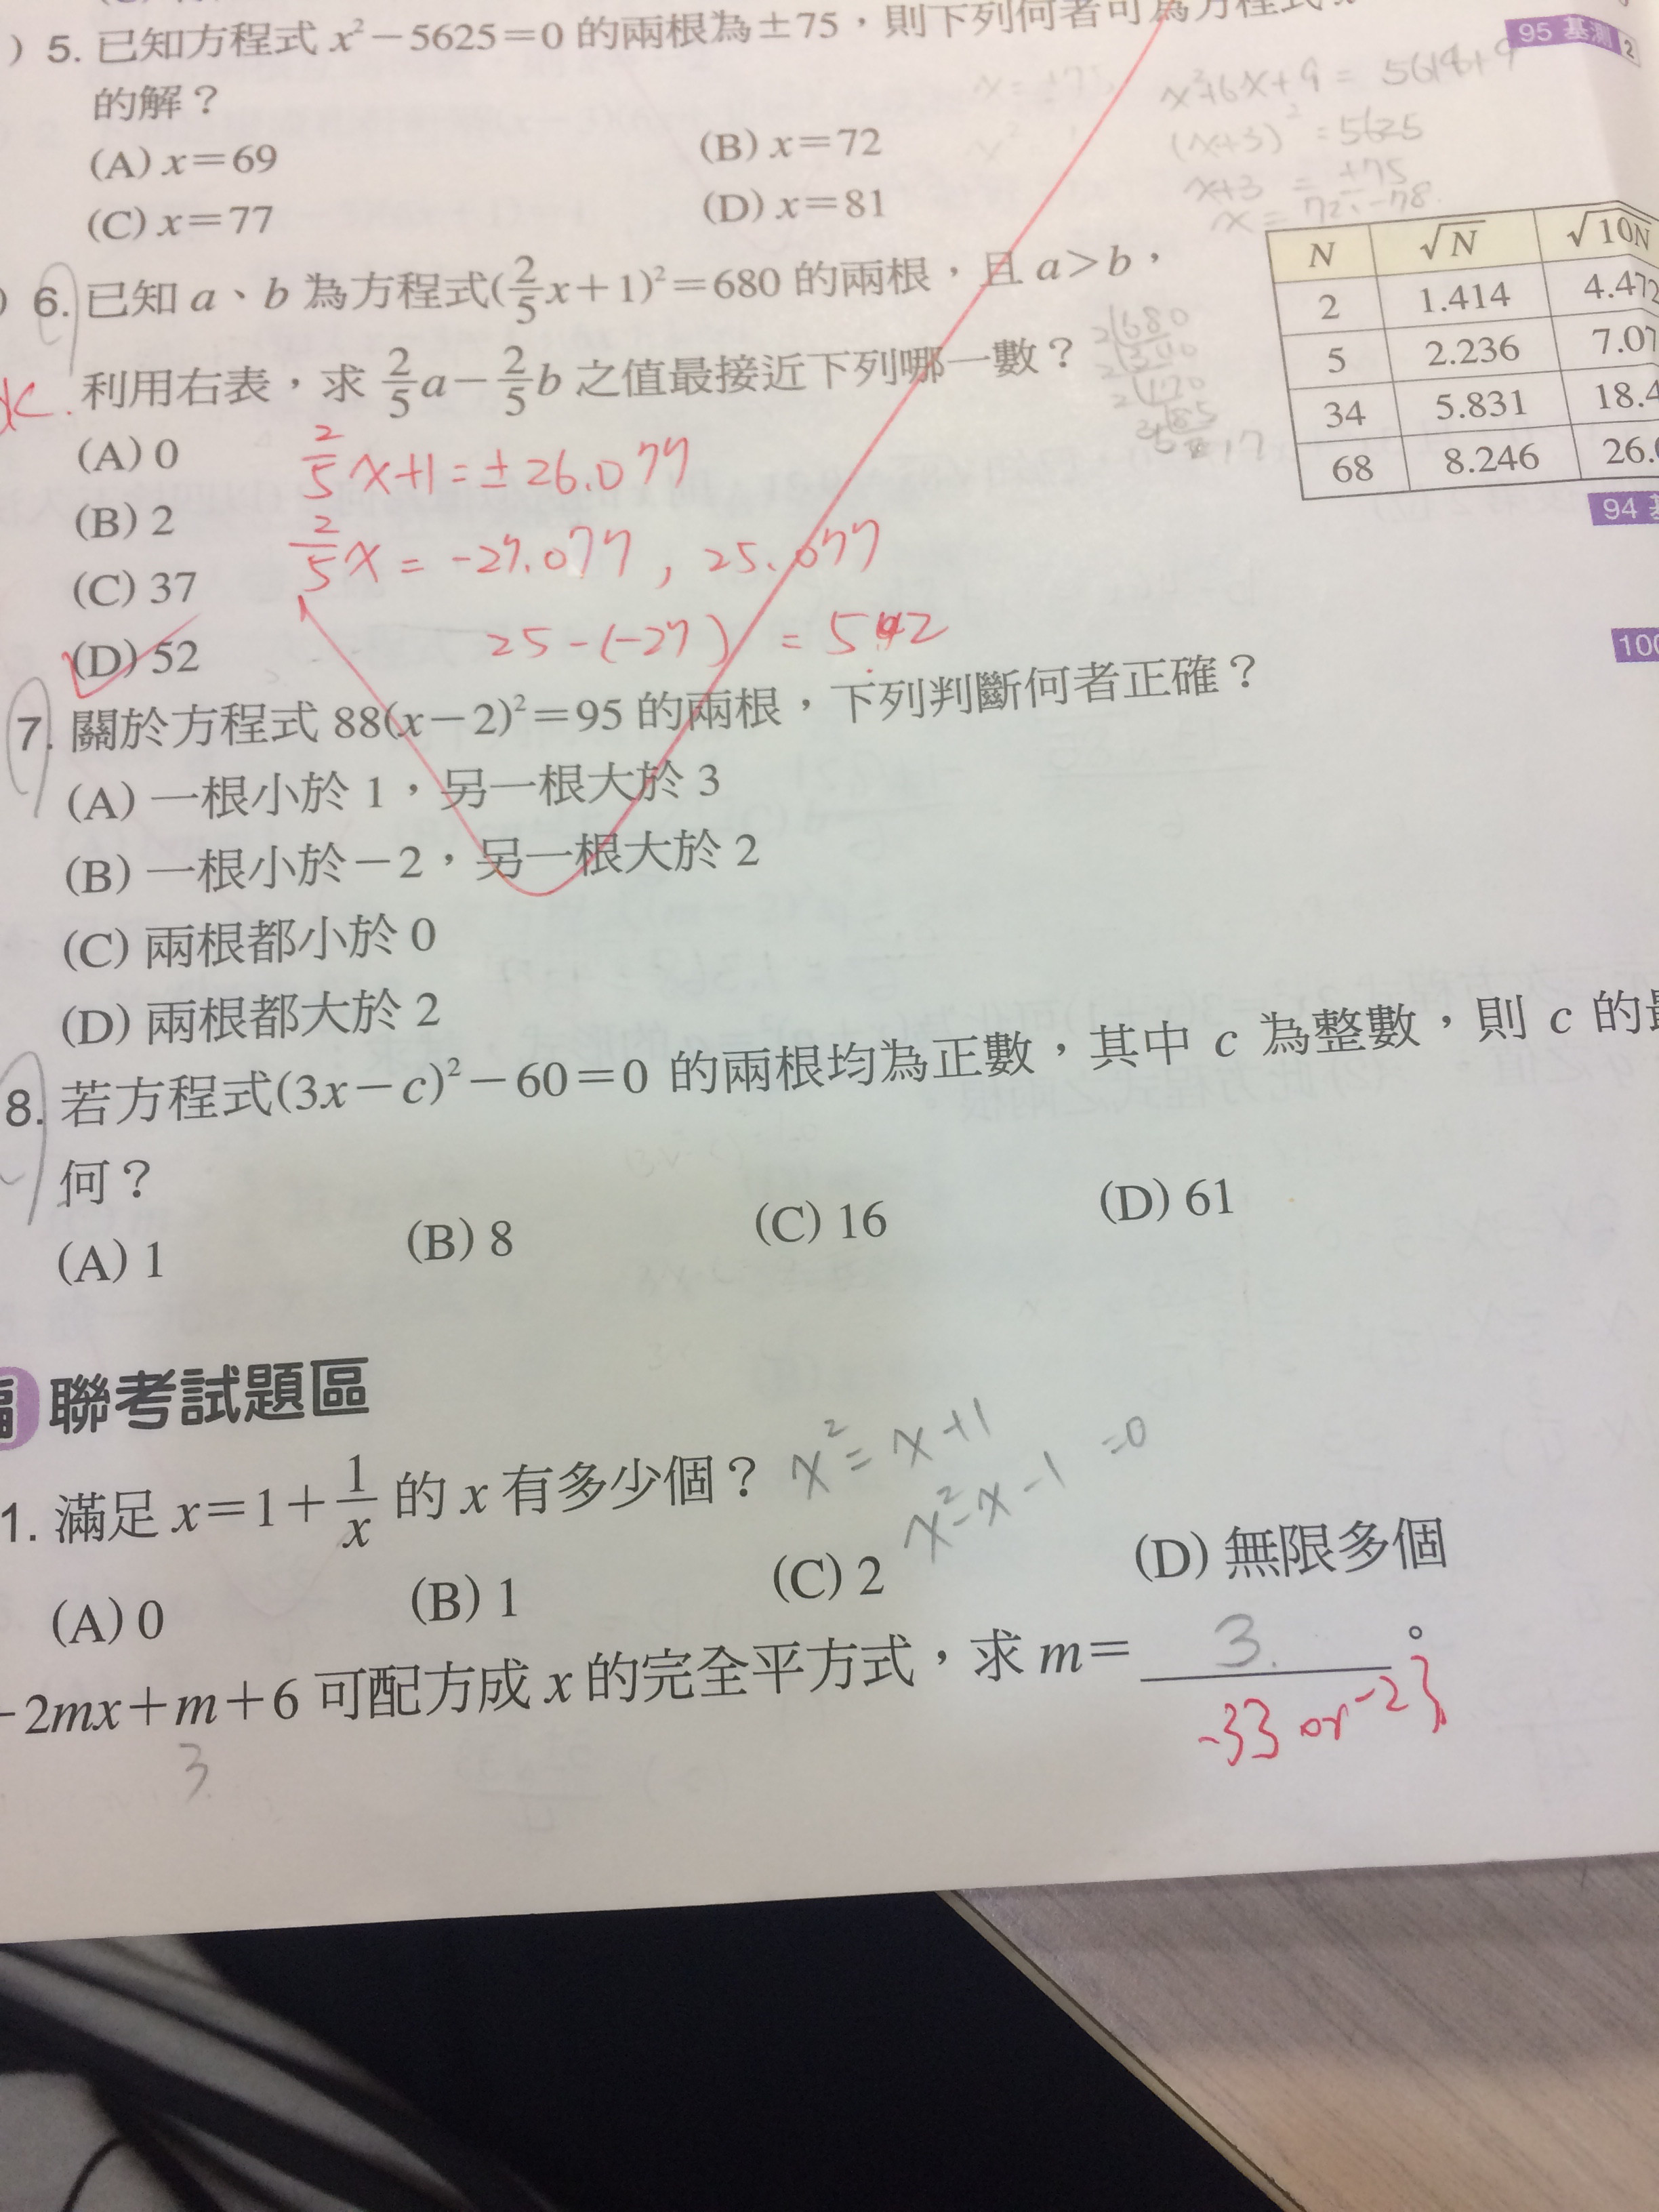 95 基測 2
) 5. 已知方程式 x²－5625＝0 的兩根為±75，則下列何者可為方程式
的解？
(A) x＝69 (B) x＝72
(C) x＝77 (D) x＝81
x²+6x+9 = 5618+9
(x+3)² = 5625
x+3 = ±75
x = 72、-78
) 6. 已知 a、b 為方程式(2/5x＋1)²＝680 的兩根，且 a＞b，
利用右表，求 2/5a－2/5b 之值最接近下列哪一數？
(A) 0
(B) 2
(C) 37
(D) 52
N √N √10N
2 1.414 4.472
5 2.236 7.07
34 5.831 18.4
68 8.246 26.0
2/5x+1=±26.077
2/5x = -27.077, 25.077
25-(-27) = 52
94 基
100
7. 關於方程式 88(x－2)²＝95 的兩根，下列判斷何者正確？
(A) 一根小於 1，另一根大於 3
(B) 一根小於－2，另一根大於 2
(C) 兩根都小於 0
(D) 兩根都大於 2
8. 若方程式(3x－c)²－60＝0 的兩根均為正數，其中 c 為整數，則 c 的最
何？
(A) 1 (B) 8 (C) 16 (D) 61
聯考試題區
1. 滿足 x＝1＋1/x 的 x 有多少個？
x² = x+1
x²-x-1 =0
(A) 0 (B) 1 (C) 2 (D) 無限多個
－2mx＋m＋6 可配方成 x 的完全平方式，求 m＝ 3. 。
3
-33 or -2